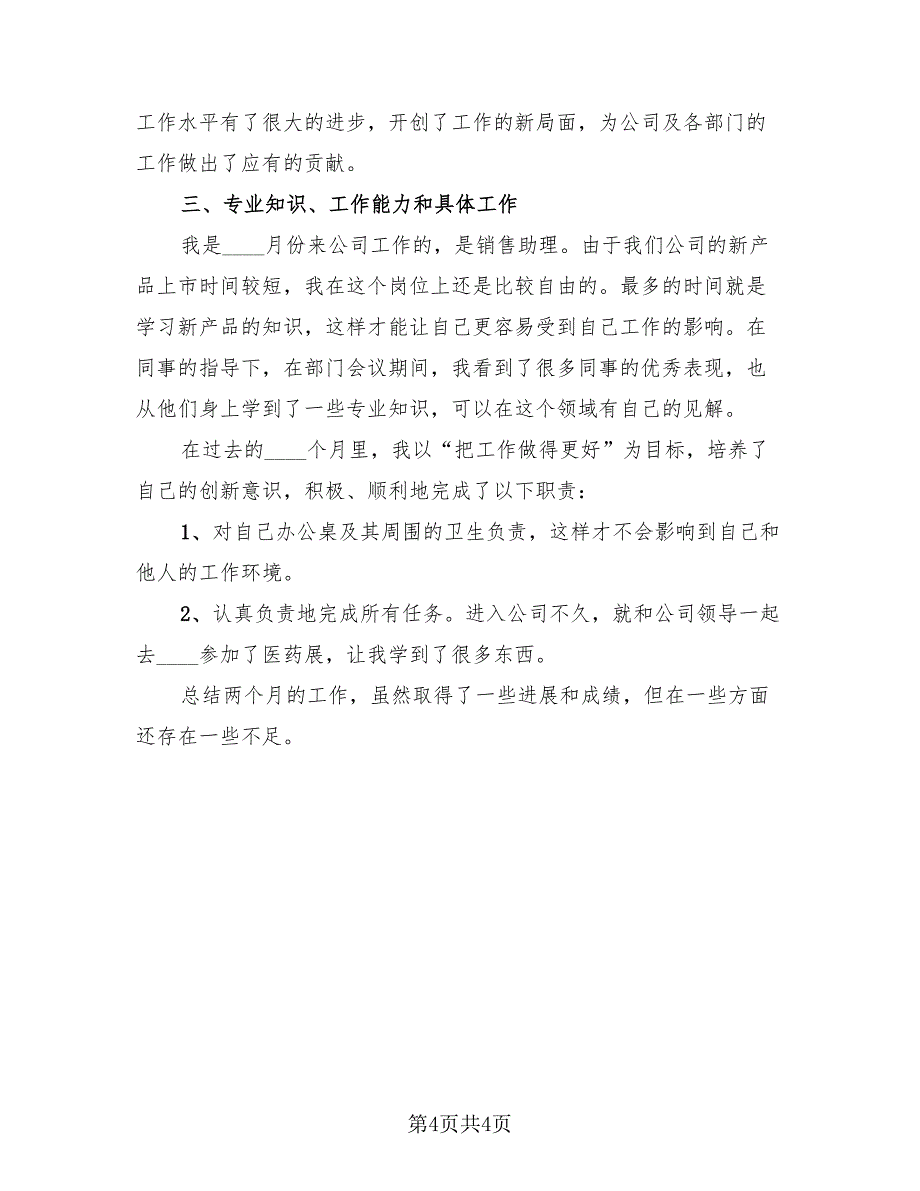 工作水平有了很大的进步，开创了工作的新局面，为公司及各部门的
工作做出了应有的贡献。
三、专业知识、工作能力和具体工作
我是____月份来公司工作的，是销售助理。由于我们公司的新产
品上市时间较短，我在这个岗位上还是比较自由的。最多的时间就是
学习新产品的知识，这样才能让自己更容易受到自己工作的影响。在
同事的指导下，在部门会议期间，我看到了很多同事的优秀表现，也
从他们身上学到了一些专业知识，可以在这个领域有自己的见解。
在过去的____个月里，我以“把工作做得更好”为目标，培养了
自己的创新意识，积极、顺利地完成了以下职责：
1、对自己办公桌及其周围的卫生负责，这样才不会影响到自己和
他人的工作环境。
2、认真负责地完成所有任务。进入公司不久，就和公司领导一起
去____参加了医药展，让我学到了很多东西。
总结两个月的工作，虽然取得了一些进展和成绩，但在一些方面
还存在一些不足。
第4页共4页